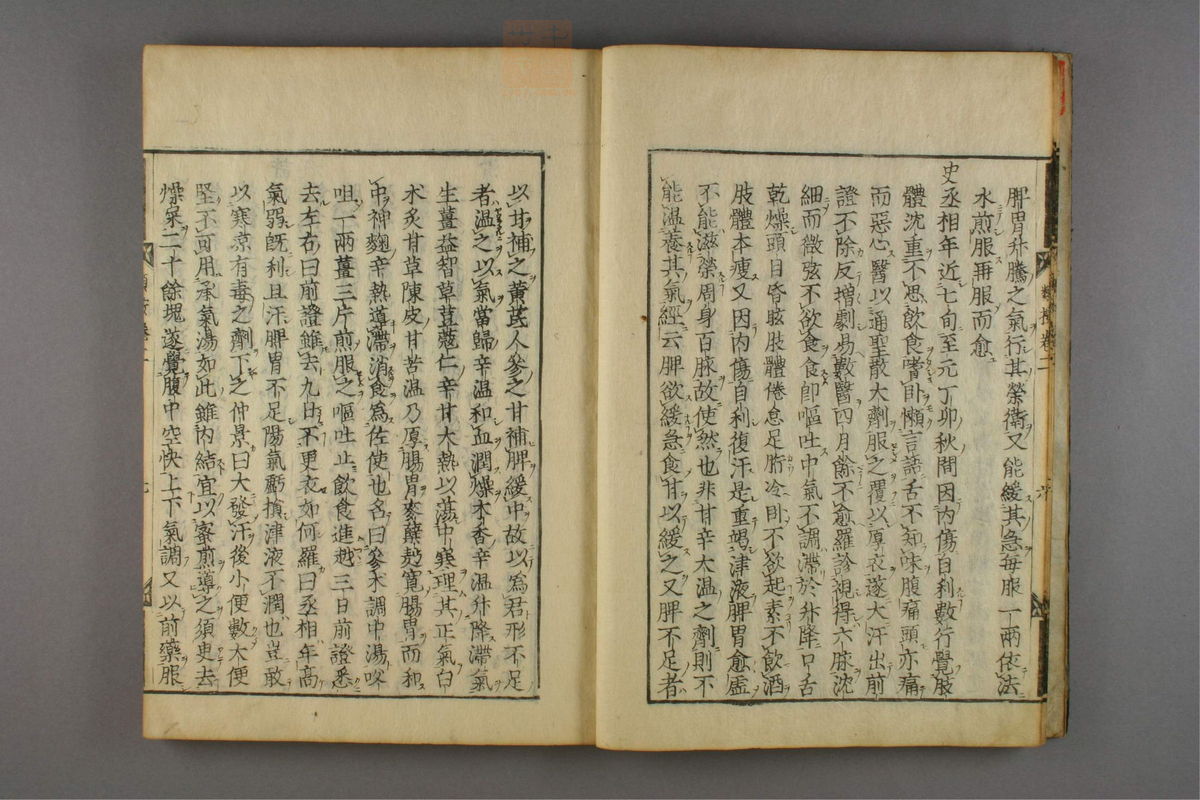 脾胃升騰之氣行其榮衛又能緩其急每服一兩依法
水煎服再服而愈
史丞相年近七旬至元丁卯秋間因内傷自利數行覺肢
體沈重不思飲食嗜卧懶言語舌不知味腹痛頭亦痛
而惡心醫以通聖散大劑服之覆以厚衣遂大汗出前
證不除反增劇易數醫四月餘不愈羅診視得六脉沈
細而微弦不欲食食即嘔吐中氣不調滯於升降口舌
乾燥頭目昏眩肢體倦怠足胻冷卧不欲起素不飲酒
肢體本瘦又因内傷自利復汗是重竭津液脾胃愈虚
不能滋榮周身百脉故使然也非甘辛大温之劑則不
能温養其氣經云脾欲緩急食甘以緩之又脾不足者
以甘補之黄芪人參之甘補脾緩中故以爲君形不足
者温之以氣當歸辛温和血潤燥木香辛温升降滯氣
生薑益智草荳蔻仁辛甘大熱以蕩中寒理其正氣白
术炙甘草陳皮甘苦温乃厚腸胃麥蘖麴寛腸胃而和
中神麴辛熱導滯消食爲佐使也名曰參术調中湯㕮
咀一兩薑三片煎服之嘔吐止飲食進越三日前證悉
去左右曰前證雖去九日不更衣如何羅曰丞相年高
氣弱既利且汗脾胃不足陽氣虧損津液不潤也豈敢
以寒凉有毒之劑下之仲景曰大發汗後小便數大便
堅不可用承氣湯如此雖内結宜以蜜煎導之須臾去
燥屎二十餘塊遂覺腹中空快上下氣調又以前藥服